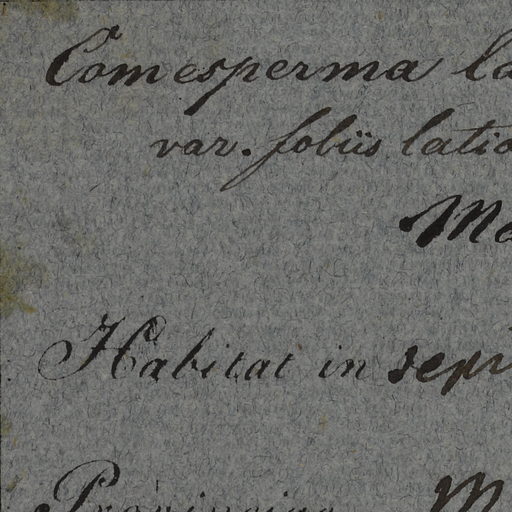 Comesperma la
var. foliis latio
Ma
Habitat in sepi
Provinciae M